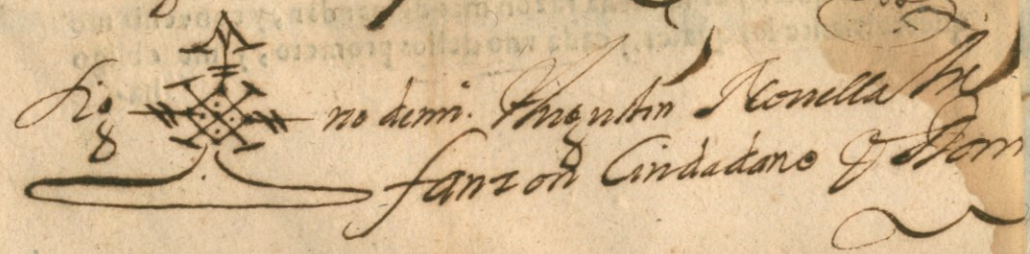 Sig no demi. Augustin Nouella In
fanzon Ciudadano y